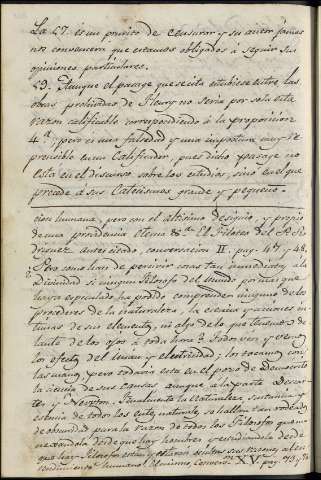 La 27. es un prurito de censurar, y su autor jamas
nos convencera que estamos obligados à seguir sus
opiniones particulares.
29. Aunque el pasage que se cita estubiese entre las
obras prohividas de Fleury no seria por solo esta
razon calificable correspondiendo à la proposicion
4.ª; pero es una falsedad y una impostura muy re
prensible en un Calificador, pues dicho pasage no
esta en el discurso sobre los estudios, sino en el que
precede à sus Catecismos grande y pequeño.
cion humana, pero con el altisimo designio, y propio
de una providencia eterna &. El Filoteo del P. Ro
driguez antes citado, conversacion II. pag. 47 y 48.
Pero como han de percivir cosas tan inmediatas à la
Divinidad si ningun Filosofo del mundo por mas que
haya especulado ha podido comprender ninguno de los
procederes de la naturaleza, la esencia y acciones in
timas de sus elementos, ni algo de lo que tienen de
lante de los ojos à toda hora? Todos ven, y
los efectos del iman y electricidad; los tocan con
las manos; pero todavia esta en el pozo de Democrito
la ciencia de sus causas aunque à la parte Descar-
tes y Newton. Igualmente la naturaleza, sustancia y
esencia de todos los entes naturales se hallan tan rodeadas
de obscuridad para la razon de todos los Filosofos que
desde que hay hombres y estudiandola desde
que hay Filosofos estan y estaran
tendimiento humano. Almeida, Convers. XV. pag.